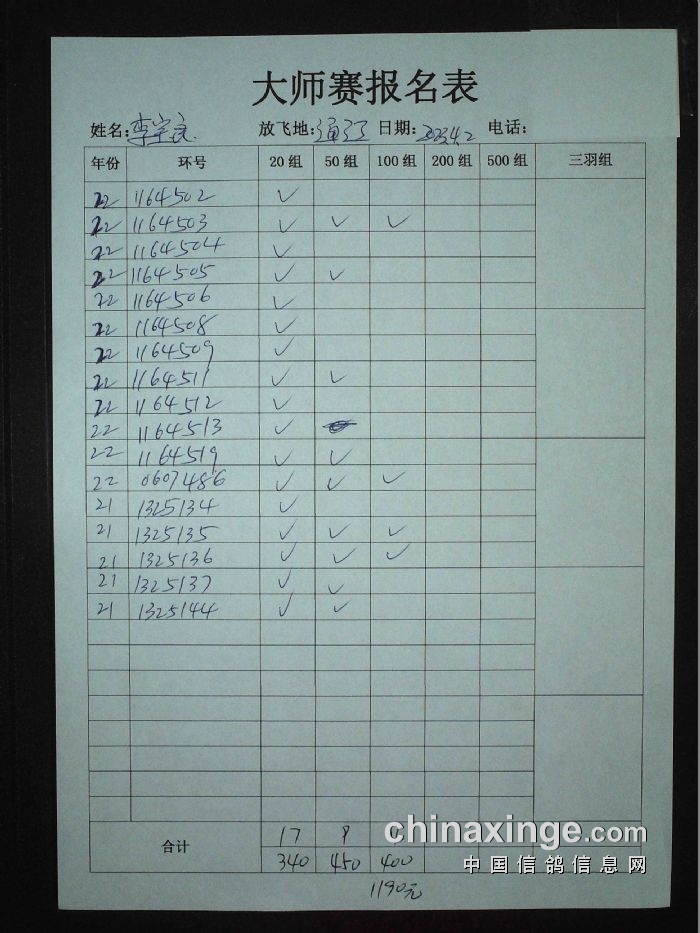 大师赛报名表
姓名: 李宝良 放飞地: 通江 日期: 2023.4.2 电话:
年份 环号 20 组 50 组 100 组 200 组 500 组 三羽组
22 1164502 ✓
22 1164503 ✓ ✓ ✓
22 1164504 ✓
22 1164505 ✓ ✓
22 1164506 ✓
22 1164508 ✓
22 1164509 ✓
22 1164511 ✓ ✓
22 1164512 ✓
22 1164513 ✓
22 1164519 ✓ ✓
22 0607486 ✓ ✓ ✓
21 1325134 ✓
21 1325135 ✓ ✓ ✓
21 1325136 ✓ ✓ ✓
21 1325137 ✓ ✓
21 1325144 ✓ ✓
合计 17
340 450 400
1190元
chinaxinge.com
中国信鸽信息网